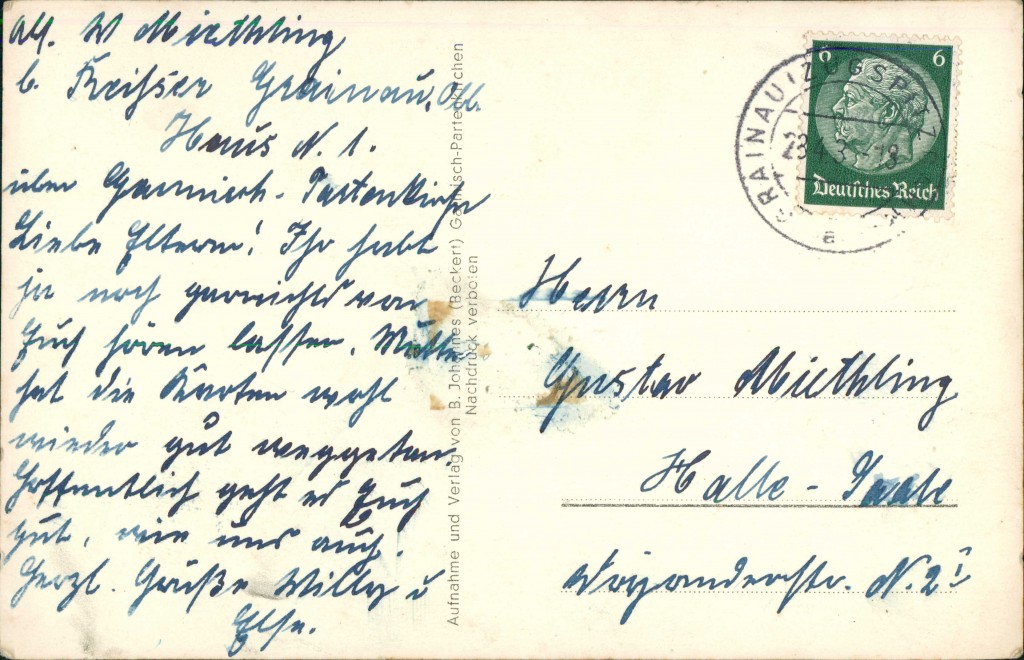 Abs. W Miethling
b. Reihser Grainau, Obb.
Haus N. 1.
über Garmisch-Partenkirchn
Liebe Eltern! Ihr habt
ja noch garnichts von
Euch hören lassen. Mutter
hat die Karten wohl
wieder gut weggetan.
Hoffentlich geht es Euch
gut, wie uns auch.
Herzl. Grüße Willy u
Else.
Aufnahme und Verlag von B. Johannes (Beckert) Garmisch-Partenkirchen
Nachdruck verboten
GRAINAU (ZUGSPITZ
a
6 6
Deutsches Reich
Herrn
Gustav Miethling
Halle - Saale
N. 2